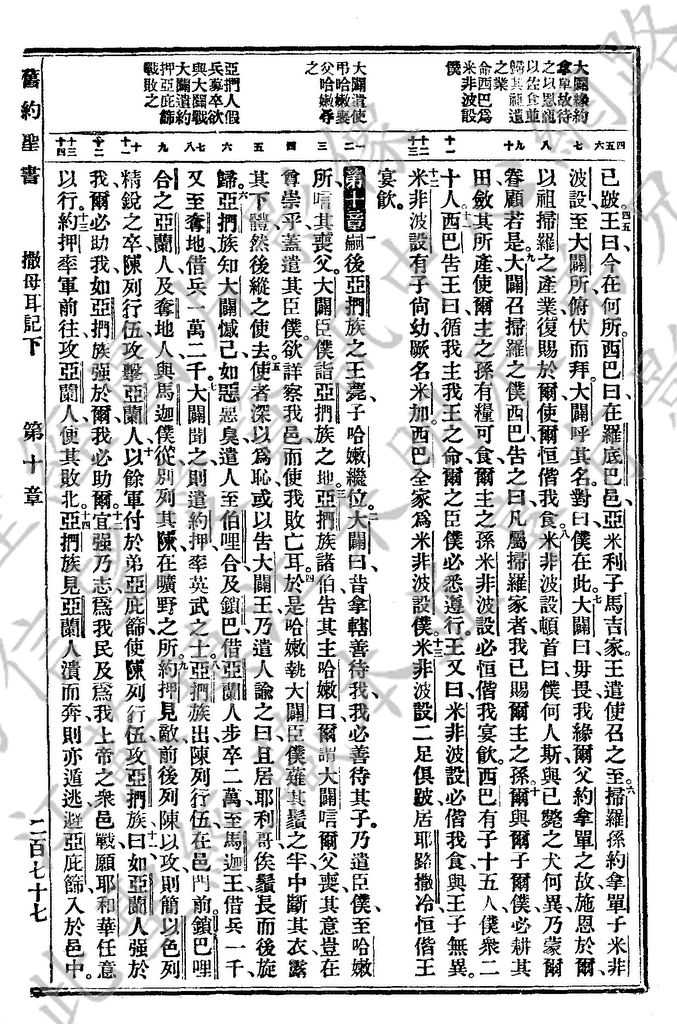 大闢緣約
拿單故待
之以恩寵
以佐食並
歸其祖遺
之業
命西巴爲
米非波設
僕
大闢遣使
弔哈嫩喪
父哈嫩辱
之
亞捫人假
兵募卒欲
與大闢戰
大闢遣約
押亞庇篩
戰敗之
四
五
六
七
八
九
十
十一
十二
十三
一
二
三
四
五
六
七
八
九
十
十一
十二
十三
十四
已跛王曰今在何所西巴曰在羅底巴邑亞米利子馬吉家王遣使召之至掃羅孫約拿單子米非
波設至大闢所俯伏而拜大闢呼其名對曰僕在此大闢曰毋畏我緣爾父約拿單之故施恩於爾
以祖掃羅之產業復賜於爾使爾恒偕我食米非波設頓首曰僕何人斯與已斃之犬何異乃蒙爾
眷顧若是大闢召掃羅之僕西巴告之曰凡屬掃羅家者我已賜爾主之孫爾與爾子爾僕必耕其
田斂其所產使爾主之孫有糧可食爾主之孫米非波設必恒偕我宴飲西巴有子十五人僕衆二
十人西巴告王曰循我主我王之命爾之臣僕必悉遵行王又曰米非波設必偕我食與王子無異
米非波設有子尙幼厥名米加西巴全家爲米非波設僕米非波設二足俱跛居耶路撒冷恒偕王
宴飲
第十章 嗣後亞捫族之王薨子哈嫩繼位大闢曰昔拿轄善待我我必善待其子乃遣臣僕至哈嫩
所唁其喪父大闢臣僕詣亞捫族之地亞捫族諸伯告其主哈嫩曰爾謂大闢唁爾父喪其意豈在
尊崇乎蓋遣其臣僕欲詳察我邑而使我敗亡耳於是哈嫩執大闢臣僕薙其鬚之半中斷其衣露
其下體然後縱之使去使者深以爲恥或以告大闢王乃遣人諭之曰且居耶利哥俟鬚長而後旋
歸亞捫族知大闢憾己如惡惡臭遣人至伯哩合及鎖巴借亞蘭人步卒二萬至馬迦王借兵一千
又至奪地借兵一萬二千大闢聞之則遣約押率英武之士亞捫族出陳列行伍在邑門前鎖巴哩
合之亞蘭人及奪地人與馬迦僕從別列其陳在曠野之所約押見敵前後列陳以攻則簡以色列
精銳之卒陳列行伍攻擊亞蘭人以餘軍付於弟亞庇篩使陳列行伍攻亞捫族曰如亞蘭人強於
我爾必助我如亞捫族強於爾我必助爾宜強乃志爲我民及爲我上帝之衆邑戰願耶和華任意
以行約押率軍前往攻亞蘭人使其敗北亞捫族見亞蘭人潰而奔則亦遁逃避亞庇篩入於邑中
舊約聖書 撒母耳記下 第十章 二百七十七